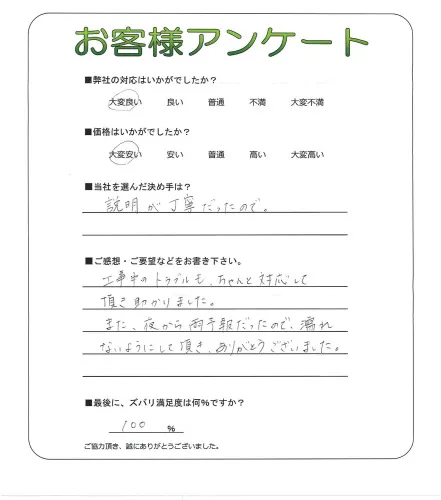 お客様アンケート
■弊社の対応はいかがでしたか？
大変良い 良い 普通 不満 大変不満
■価格はいかがでしたか？
大変安い 安い 普通 高い 大変高い
■当社を選んだ決め手は？
説明が丁寧だったので。
■ご感想・ご要望などをお書き下さい。
工事中のトラブルも、ちゃんと対応して
頂き助かりました。
また、夜から雨予報だったので、濡れ
ないようにして頂き、ありがとうございました。
■最後に、ズバリ満足度は何%ですか？
100 %
ご協力頂き、誠にありがとうございました。